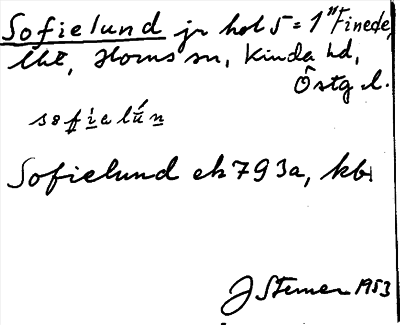 Sofielund jr hol 5 = 1 "Finede,
Horns sn, Kinda hd,
Östg l.
sofialún
Sofielund ek 793a, kbl
J Sterner 1953